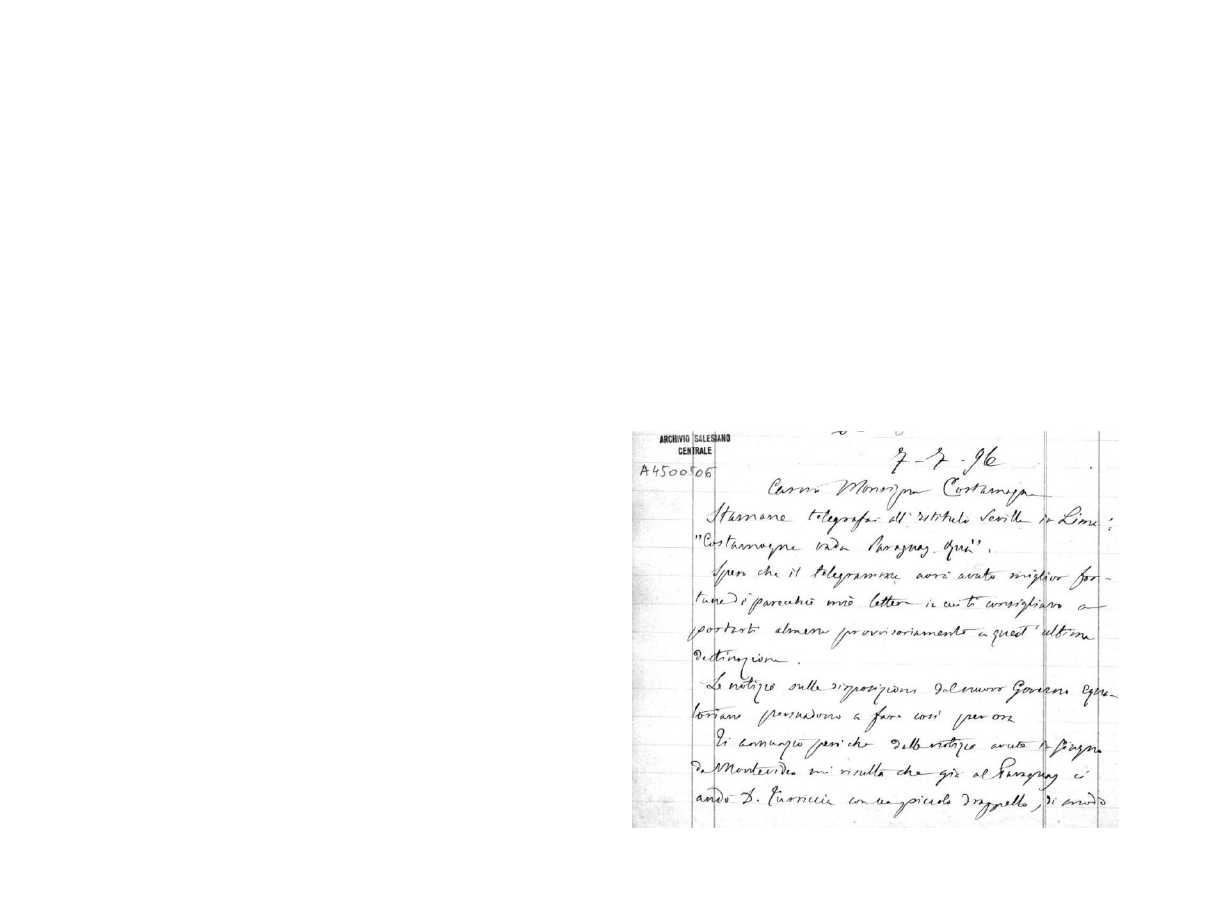 ARCHIVIO SALESIANO
CENTRALE
A4500506
7-7-96
Carmo Monsigne Costamagna
Stamane telegrafai all'Istituto Sevilla in Lima:
"Costamagna vada Paraguay
Spero che il telegramma avrà avuto miglior for-
tuna di parecchie mie lettere in cui ti consigliavo a
portarti almeno provvisoriamente a quest'ultima
destinazione.
Le notizie sulle disposizioni del nuovo Governo Equa-
toriano persuadono a fare così per ora
Ti annunzio però che dalle notizie avute in Giugno
da Montevideo mi risulta che già al Paraguay ci
andò D. Turriccia con un piccolo drappello, di modo